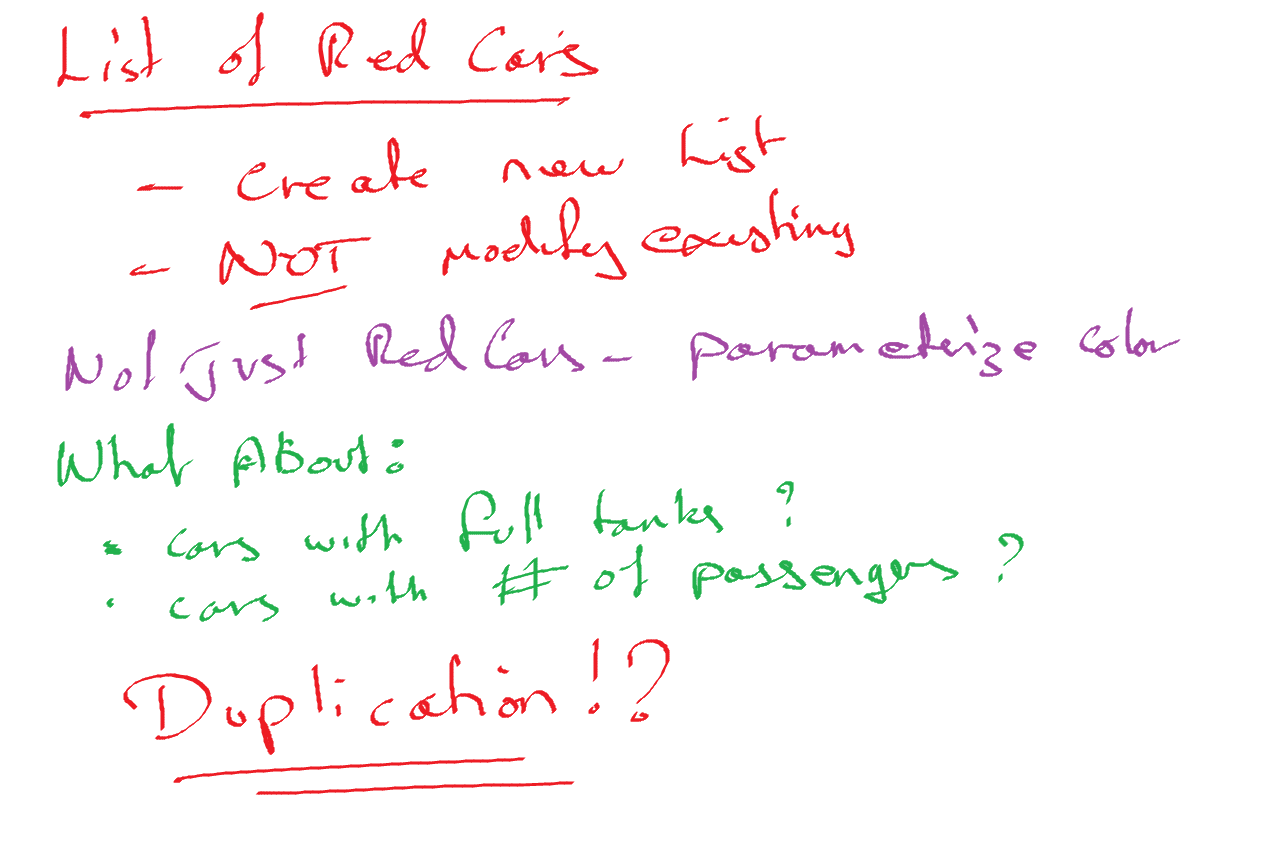 List of Red Cars
- Create new List
- NOT modify existing
Not Just Red Cars - parameterize color
What About:
• cars with full tanks ?
• cars with # of passengers ?
Duplication!?